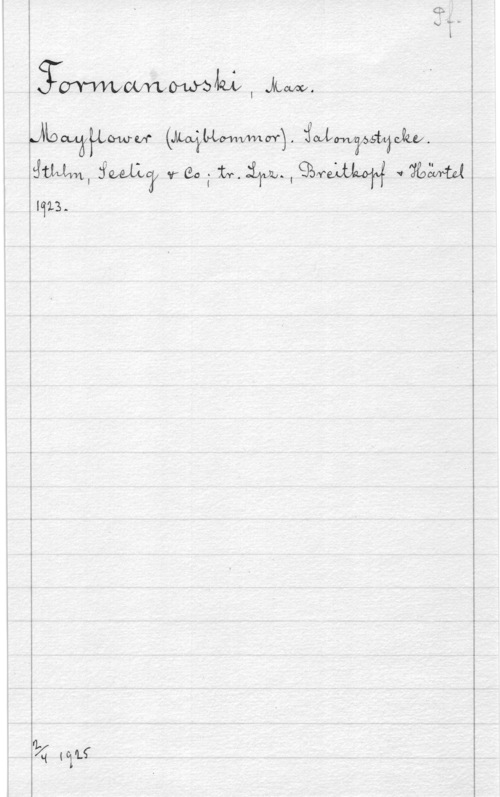 Pf.
Formanowski, Max.
Mayflower (Majblommor). Salongsstycke.
Sthlm, Seelig & Co; tr. Lpz., Breitkopf & Härtel
1923.
2/4 1925